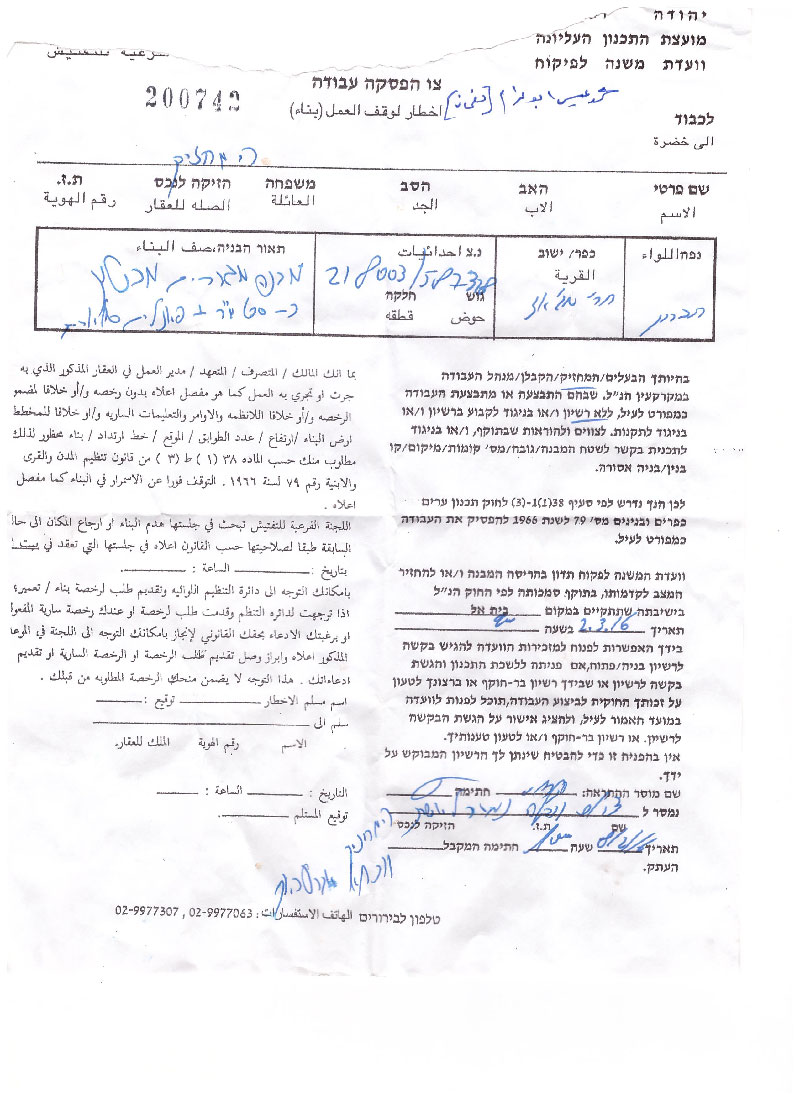 יהודה
מועצת התכנון העליונה
וועדת משנה לפיקוח
צו הפסקה עבודה
200742
اخطار لوقف العمل (بناء)
לכבוד
الى حضرة
שם פרטי האב הסב משפחה הזיקה לנכס ת.ז.
الاسم الاب الجد العائلة الصله للعقار رقم الهوية
נפה/اللواء כפר/ ישוב נ.צ احداثيات תאור הבניה/صف البناء
القرية גוש חלקה
حوض قطقه
חברון
בהיותך הבעלים/המחזיק/הקבלן/מנהל העבודה
במקרקעין הנ"ל, שבהם התבצעה או מתבצעת העבודה
כמפורט לעיל, ללא רשיון ו/או בניגוד לקבוע ברשיון ו/או
בניגוד לתקנות. לצווים ולהוראות שבתוקף, ו/או בניגוד
לתכנית בקשר לשטח המבנה/גובה/מס' קומות/מיקום/קו
בנין/בניה אסורה.
לכן הנך נדרש לפי סעיף 38(1)-(3) לחוק תכנון ערים
כפרים ובנינים מס' 79 לשנת 1966 להפסיק את העבודה
כמפורט לעיל.
וועדת המשנה לפקוח תדון בהריסה המבנה ו/או להחזיר
המצב לקדמותו, בתוקף סמכותה לפי החוק הנ"ל
בישיבתה שתתקיים במקום בית אל
תאריך 2.3.16 בשעה
בידך האפשרות לפנות למזכירות הוועדה להגיש בקשה
לרשיון בניה/פתוח,אם פניתה ללשכת התכנון והגשת
בקשה לרשיון או שבידך רשיון בר-תוקף או ברצונך לטעון
על זכותך החוקית לביצוע העבודה,תוכל לפנות לוועדה
במועד האמור לעיל, ולהציג אישור על הגשת הבקשה
לרשיון. או רשיון בר-תוקף ו/או לטעון טענותיך.
אין בהפניה זו כדי להבטיח שינתן לך הרשיון המבוקש על
ידך.
שם מוסר ההתראה: חתימה
נמסר ל
שם ת.ז. הזיקה לנכס
תאריך שעה חתימה המקבל
העתק.
بما انك المالك / المتصرف / المتعهد / مدير العمل في العقار المذكور الذي به
جرت او تجري به العمل كما هو مفصل اعلاه بدون رخصه و/أو خلافا لمضمو
الرخصه و/أو خلافا للانظمه والاوامر والتعليمات الساريه و/او خلافا للمخطط
اوض البناء /ارتفاع / عدد الطوابق / الموقع / خط ارتداد / بناء محظور لذلك
مطلوب منك حسب الماده ٣٨ (١) ط (٣) من قانون تنظيم المدن والقرى
والابنية رقم ٧٩ لسنة ١٩٦٦ . التوقف فورا عن الاستمرار في البناء كما مفصل
اعلاه .
اللجنة الفرعية للتفتيش تبحث في جلستها هدم البناء او ارجاع المكان الى حال
السابقة طبقا لصلاحيتها حسب القانون اعلاه في جلستها التي تعقد في بيت
بتاريخ: الساعة :
بامكانك التوجه الى دائرة التنظيم اللوائيه وتقديم طلب لرخصة بناء / تعمير؛
اذا توجهت لدائره التنظم وقدمت طلب لرخصة او عندك رخصة سارية المفعو
او برغبتك الادعاء بحقك القانوني لإنجاز بامكانك التوجه الى اللجنة في الموعا
المذكور اعلاه وابراز وصل تقديم طلب الرخصة او الرخصة السارية او تقديم
ادعاءاتك . هذا التوجه لا يضمن منحك الرخصة المطلوبه من قبلك .
اسم مسلم الاخطار توقيع :
سلم الى
الاسم رقم الهوية الملك للعقار.
التاريخ : الساعة :
توقيع المستلم
טלפון לבירורים الهاتف الاستفسارات : 02-9977063 , 02-9977307